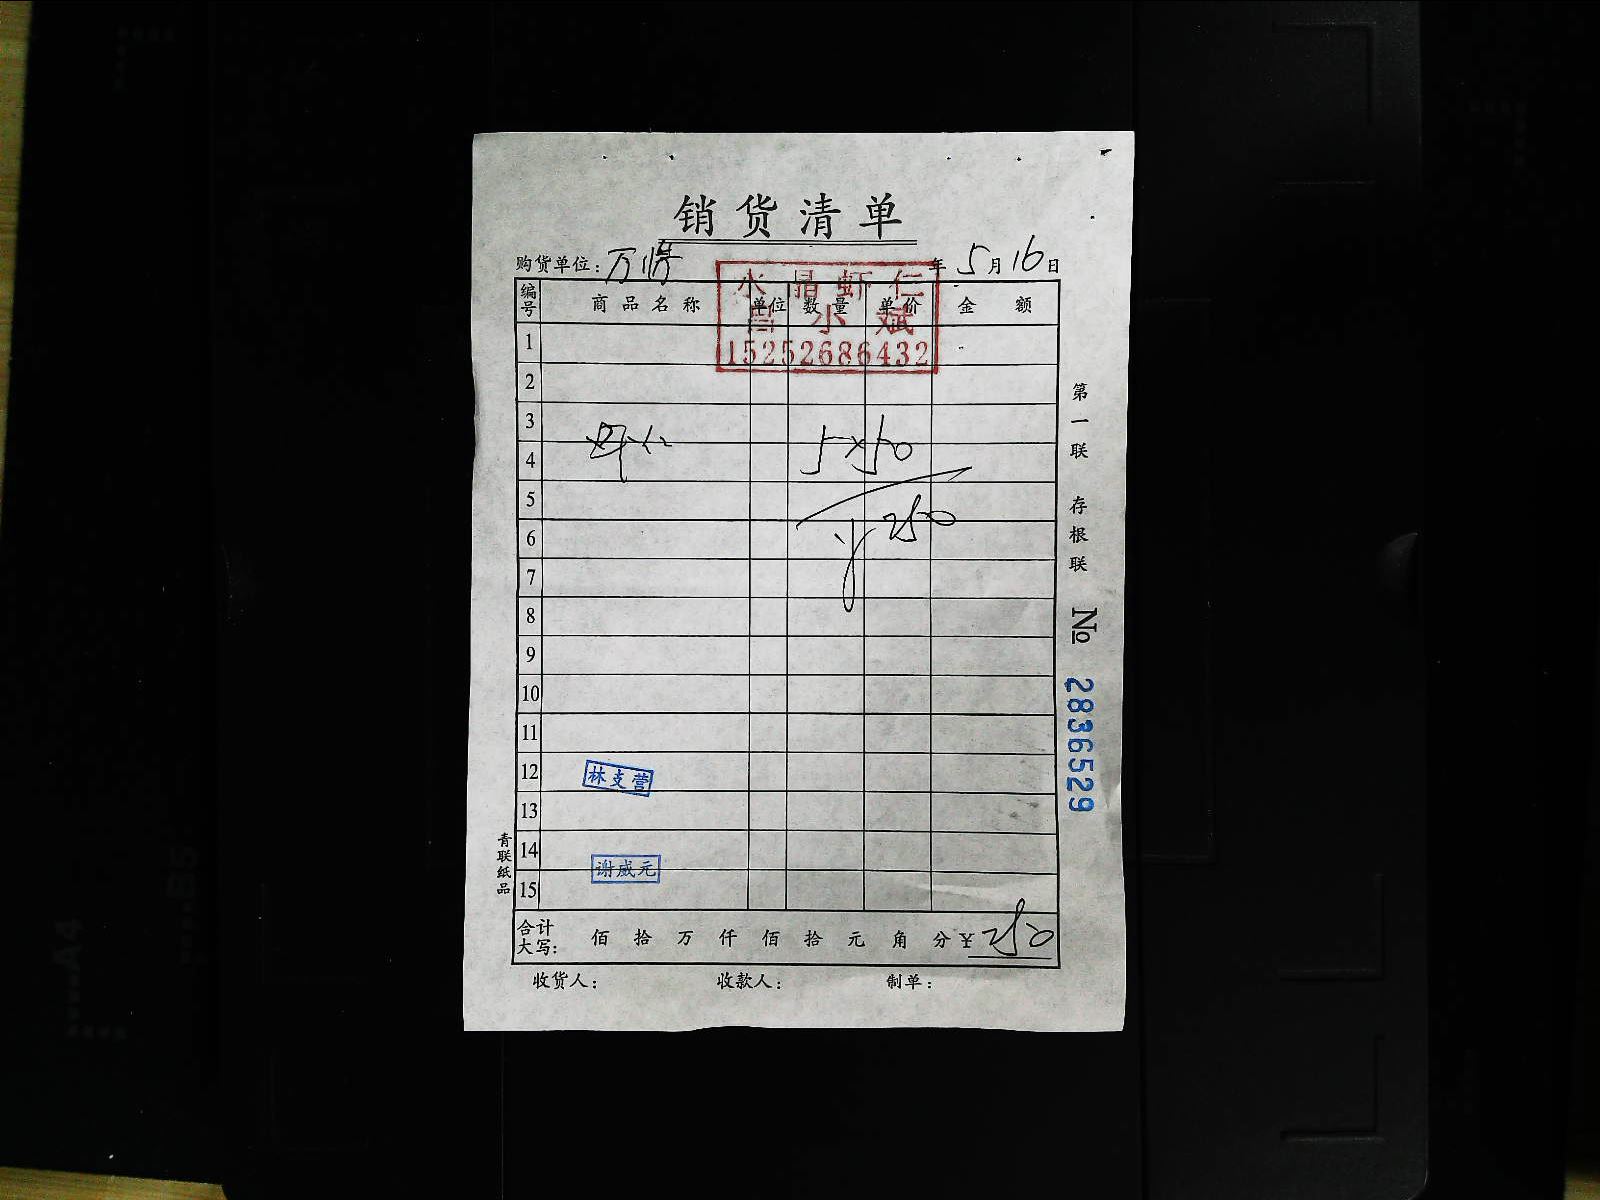 销货清单
购货单位: 万 年 5月16日
水晶虾仁
小斌
15252686432
编号 商品名称 单位 数量 单价 金额
1
2
3
虾仁 5×50
4
5
¥250
6
7
8
9
10
11
12 林支营
13
14 谢威元
15
合计大写: 佰 拾 万 仟 佰 拾 元 角 分 ¥ 250
收货人: 收款人: 制单:
第一联 存根联
№ 2836529
青联纸品
A4
B5